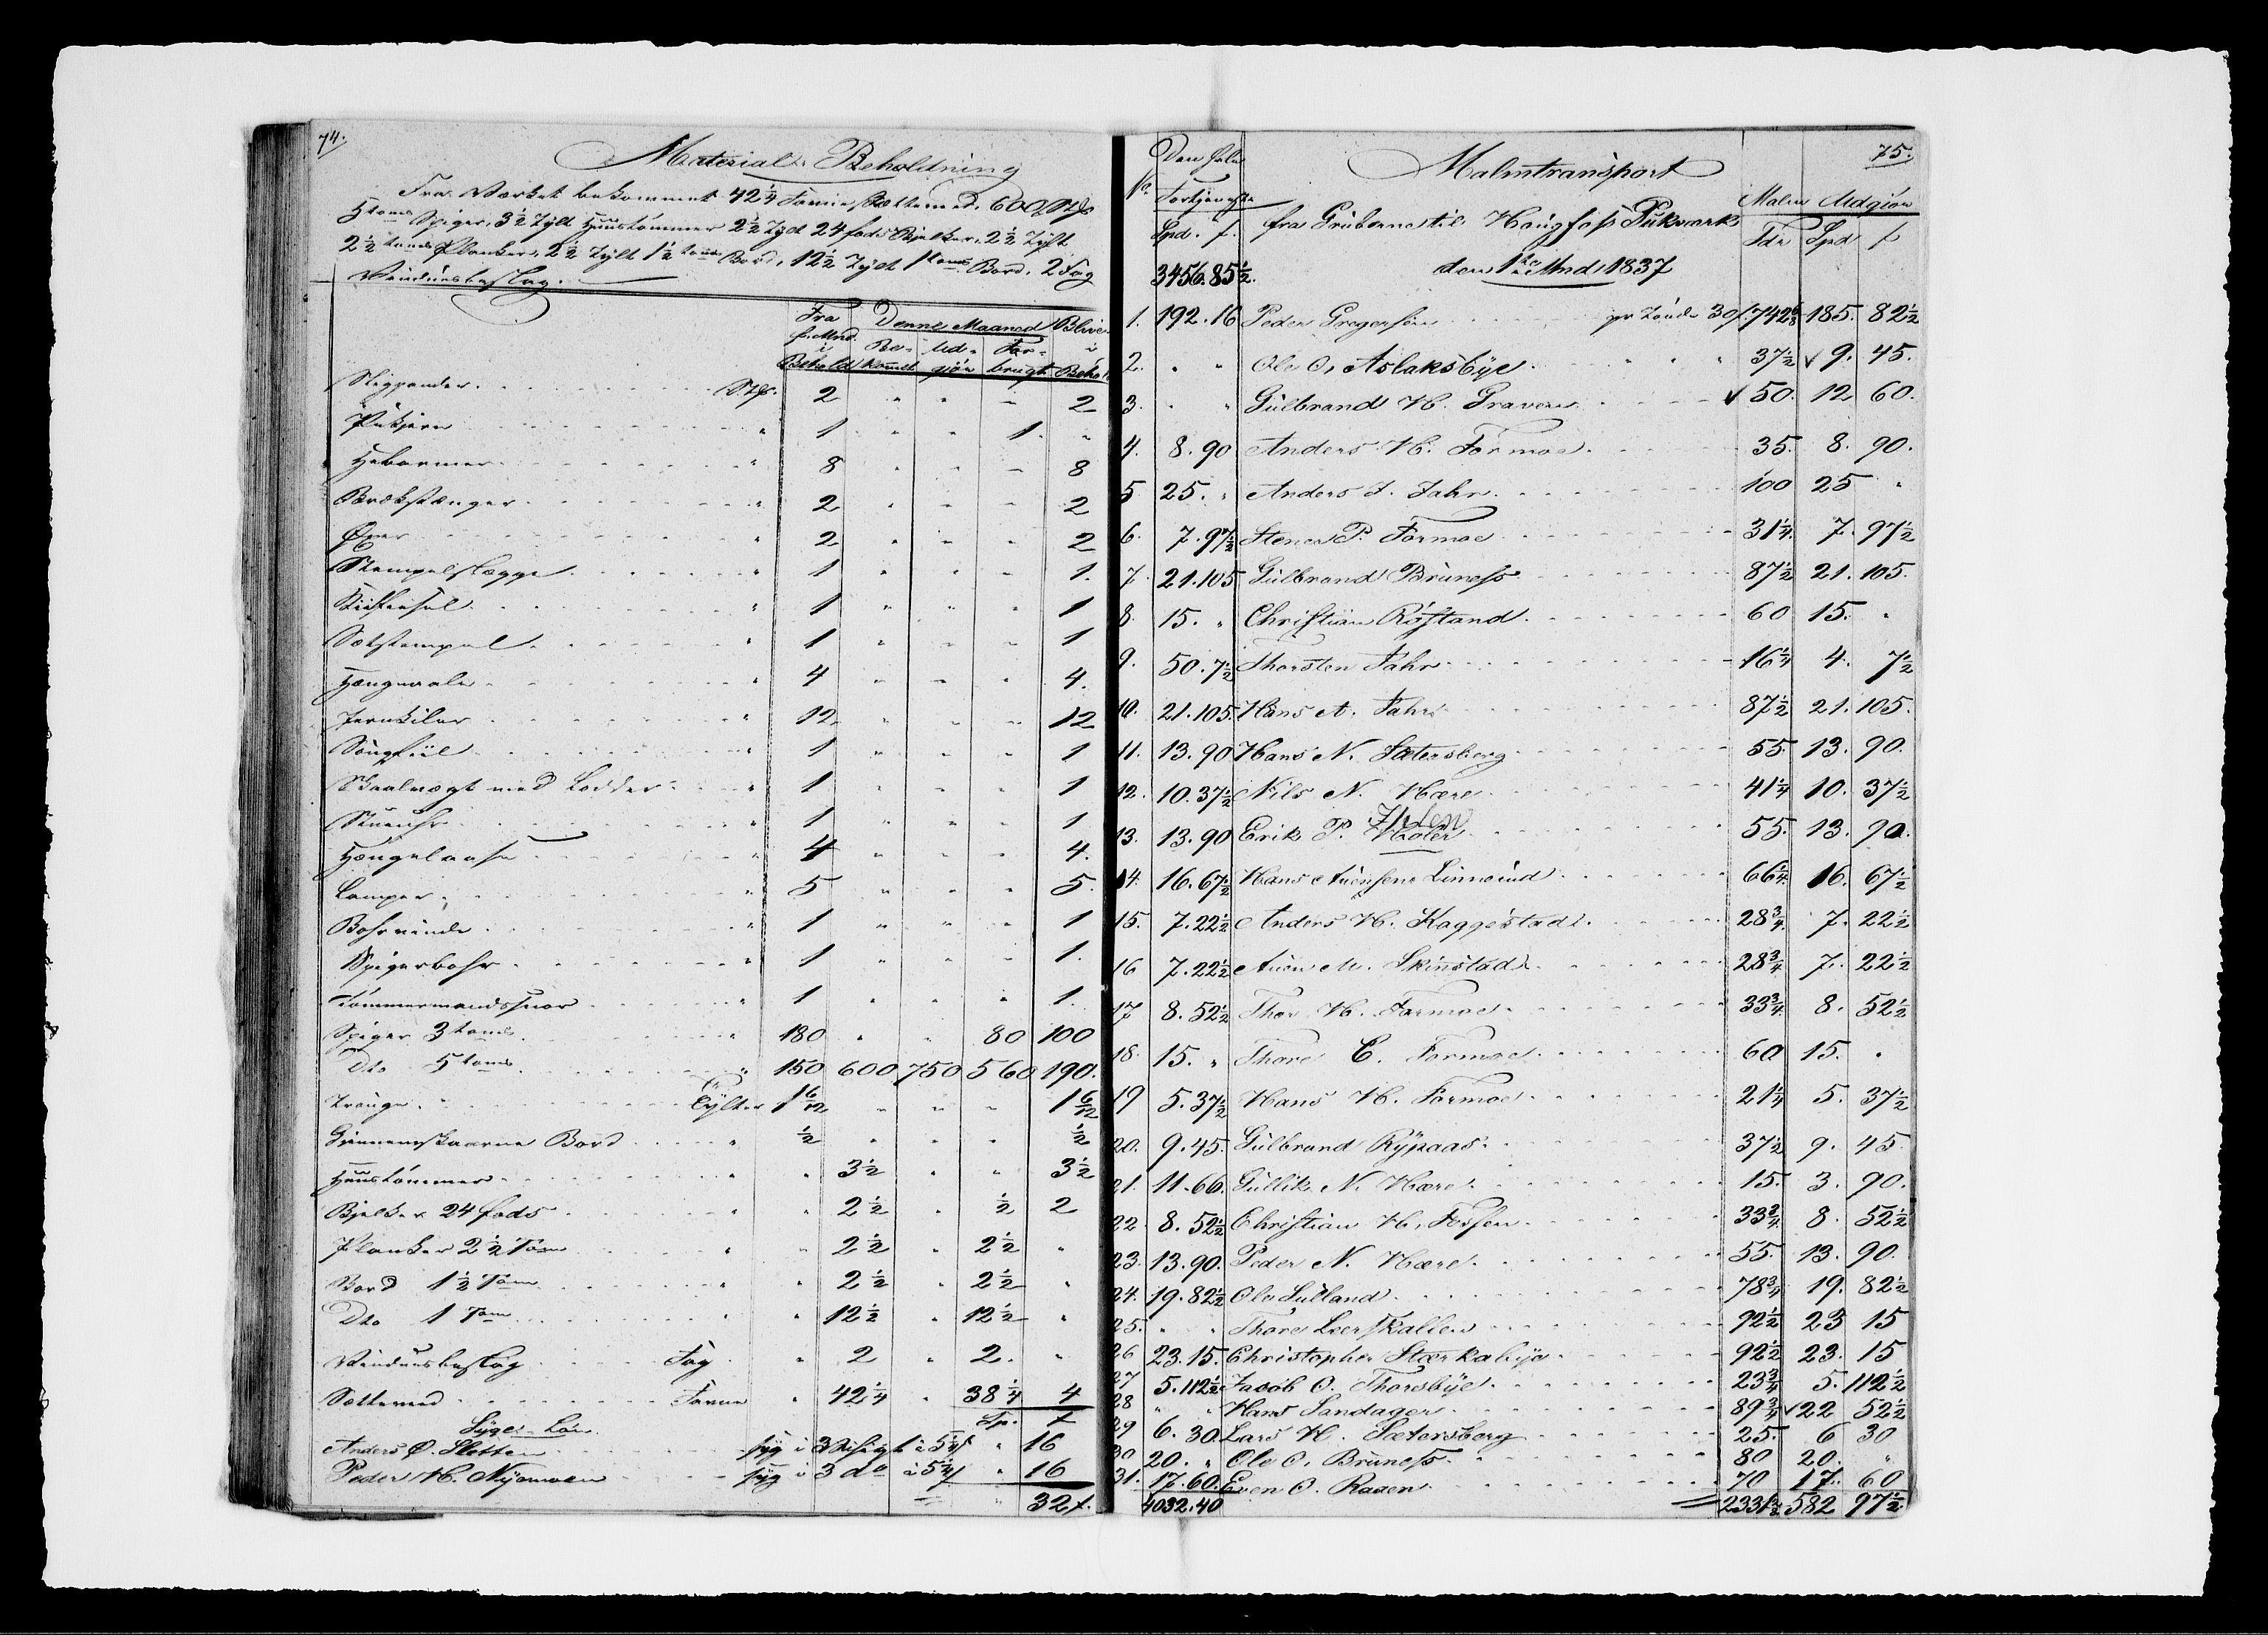 74.
Material-Beholdning
Fra Værket bekommet 42 1/4 Favne Sætteved, 600 Stk
5 toms Spiger, 3 1/2 Tylt Huustømmer 2 1/2 Tylt 24 fods Bjelker, 2 1/2 Tylt
2 1/2 toms Planker, 2 1/2 Tylt 1 1/2 toms Bord, 12 1/2 Tylt 1 toms Bord, 2 Fag
Vinduesbeslag.
Fra f. Mnd. i Behold Denne Maaned Bliver i Behold
Be-kommet Ud-gjør For-brugt
Stk. 2 " " " 2
Pukjern " 1 " " 1. "
Hebarmer " 8 " " " 8
Brækstænger " 2 " " " 2
Øxer " 2 " " " 2
Stempelslægge " 1 " " " 1.
" 1 " " " 1
Sætstempel " 1 " " " 1
" 4 " " " 4.
Jernkiler " 12 " " " 12
Saugfiil " 1 " " " 1
Skaalvægt med Lodder " 1 " " " 1
Stueuhr " 1 " " " 1
Hængelaase " 4 " " " 4.
Lamper " 5 " " " 5.
Bohrvinde " 1 " " " 1
Spigerbohr " 1 " " " 1.
Tømmermandssnor " 1 " " " 1.
Spiger 3 toms " 180 " " 80 100
Dto 5 toms " 150 600 750 560 190.
Trauge Tylter 1 6/12 " " " 1 6/12
Gjennemskaarne Bord " 1/2 " " " 1/2
Huustømmer " " 3 1/2 " " 3 1/2
Bjelker 24 fods " " 2 1/2 " 1/2 2
Planker 2 1/2 Tom " " 2 1/2 " 2 1/2 "
Bord 1 1/2 Tom " " 2 1/2 " 2 1/2 "
Dto 1 Tom " " 12 1/2 " 12 1/2 "
Vinduesbeslag Fag " 2 " 2. "
Sætteved Favne " 42 1/4 " 38 1/4 4
Syge-Løn Sp. f
Anders O. Sletten syg i 3 à 5 1/3 f " 16
Peder H. Nyemoen syg i 3 do à 5 1/3 f " 16
" 32 f.
75.
No. Den hele Fortjeneste Spd. f.
Malmtransport
fra Gruberne til Haugfoss Pukværk
den 1te Mnd 1837
Malm Tdr Udgjør Spd f
3456.85 1/2.
1. 192.16 Peder Gregersen pr Tønde 30 f. 742 185. 82 1/2
2. " " Ole O. Aslaksbye 37 1/2 9. 45.
3. " " Gulbrand H. Graven 50. 12 60.
4. 8.90 Anders H. Formoe 35. 8. 90.
5 25. " Anders J. Fahr 100 25 "
6. 7.97 1/2 Stener P. Formoe 31 1/4. 7. 97 1/2
7. 21.105 Gulbrand Bruness 87 1/2 21. 105.
8. 15. " Christian Røstand 60 15. "
9. 50.7 1/2 Thorsten Fahr 16 1/4 4. 7 1/2
10. 21.105. Hans A. Fahr 87 1/2 21. 105.
11. 13.90 Hans N. Sætersberg 55. 13. 90.
12. 10.37 1/2 Nils N. Hære 41 1/4 10. 37 1/2
13. 13.90 Erik P. Holer 55. 13. 90.
14. 16.67 1/2 Hans Auensen Linnerud 66 1/4. 16. 67 1/2
15. 7.22 1/2 Anders H. Kaggestad 28 3/4. 7. 22 1/2
16 7.22 1/2 Auen M. Skinstad 28 3/4. 7. 22 1/2
17 8.52 1/2 Thor H. Formoe 33 3/4. 8. 52 1/2
18. 15. " Thore E. Formoe 60 15. "
19 5.37 1/2 Hans H. Formoe 21 1/4 5. 37 1/2
20. 9.45. Gulbrand Rypaas 37 1/2 9. 45
21. 11.66. Gullik N. Hære 15. 3. 90.
22. 8.52 1/2 Christian H. Fossen 33 3/4. 8. 52 1/2
23. 13.90. Peder N. Hære 55. 13. 90.
24. 19.82 1/2 Ole Sulland 78 3/4 19. 82 1/2
25. " " Thore Leerskallen 92 1/2 23 15
26 23.15. Christopher Stærkebye 92 1/2 23. 15
27 5.112 1/2 Jacob O. Thorsbye 23 3/4 5. 112 1/2
28 " " Hans Sandager 89 3/4 22 52 1/2
29 6. 30. Lars H. Sætersberg 25. 6 30
30 20. " Ole O. Bruness 80 20. "
31. 17.60. Even O. Raaen 70 17. 60
4032.40 2331 582 97 1/2